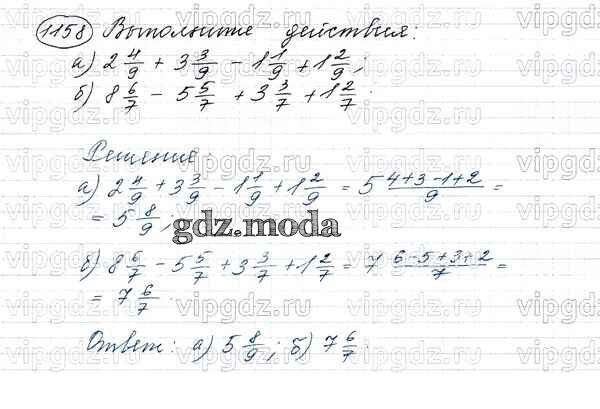 1158 Выполните действия:
а) 2 4/9 + 3 3/9 - 1 1/9 + 1 2/9;
б) 8 6/7 - 5 5/7 + 3 3/7 + 1 2/7.
Решение:
а) 2 4/9 + 3 3/9 - 1 1/9 + 1 2/9 = 5 4+3-1+2/9 =
= 5 8/9;
gdz.moda
б) 8 6/7 - 5 5/7 + 3 3/7 + 1 2/7 = 7 6-5+3+2/7 =
= 7 6/7.
Ответ: а) 5 8/9; б) 7 6/7.
vipgdz.ru